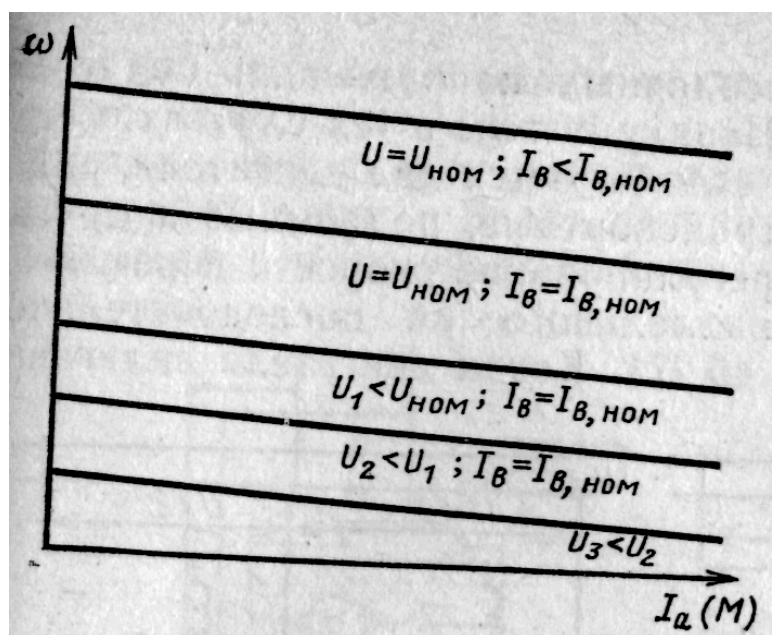 ω
U=Uном ; Iв<Iв,ном
U=Uном ; Iв=Iв,ном
U1<Uном ; Iв=Iв,ном
U2<U1 ; Iв=Iв,ном
U3<U2
Ia (M)